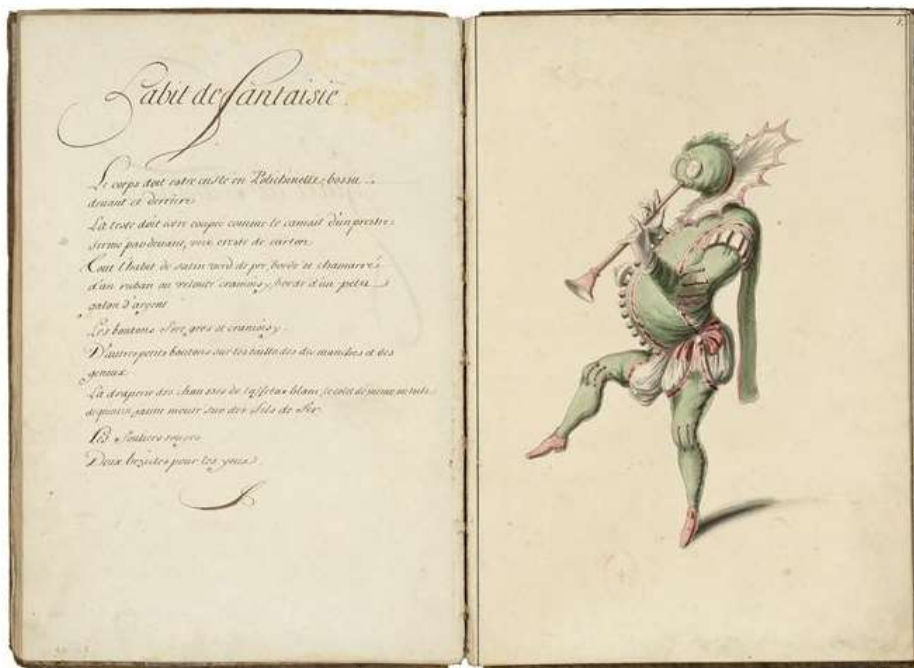 habit de fantaisie.
Le corps doit estre en ste en Polichinelle, bossu
devant et derriere
La teste doit estre coupée comme le camail d'un prestre
fermé par devant, une creste de carton
Tout l'habit de satin verd de pré, bordé et chamarré
d'un ruban ou velouté cramoisy, bordé d'un petit
galon d'argent
Les boutons gros et cramoisy
D'autres petits boutons sur les taillades des manches et des
genoux
La draperie des chausses de taffetas blanc, le colet de mesme
de quatre, jaune monté sur des fils de fer
Les souliers rouges
Deux bezicles pour les yeux